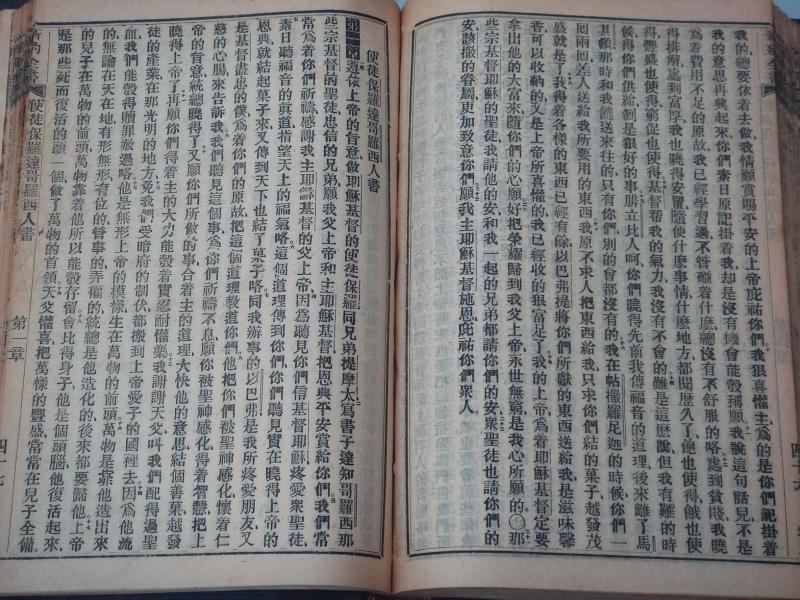 我的總要依着去做我情願賞賜平安的上帝庇祐你們我狠喜懽主爲的是你們記掛着
我的意思再興起來你們素日原記掛着我却是沒有機會能彀稱願我說這句話兒不是
爲着費用不足的原故我已經學習過不管碰着什麽總沒有不舒服的咯處到貧賤我曉
得排解處到富厚我也曉得安置隨使什麽事情什麽地方都閱歷久了飽也使得餓也使
得豐盛也使得窮促也使得基督幫我的氣力我沒有不會的雖是這麽說但我有難的時
候得你們供給倒是狠好的事腓立比人呵你們曉得先前我傳福音的道理後來離了馬
其頓那時和我餽送來往的只有你們別的會都沒有的我在帖撒羅尼迦的時候你們一
回兩回差人送給我所要用的東西我原不求人把東西給我只求你們結的菓子越發茂
盛就是了我得着各樣的東西已經有餘以巴弗提將你們所獻的東西送給我是滋味馨
香可以收納的又是上帝所喜懽的我已經收的狠富足了我的上帝爲着耶穌基督定要
拿出他的大富來隨你們的心願好把榮耀歸到我父上帝永世無窮是我心所願的〇那
些宗基督耶穌的聖徒我請他的安和我一起的兄弟都請你們的安衆聖徒也請你們的
安該撒的眷屬更加致意你們願我主耶穌基督施恩庇祐你們衆人
使徒保羅達哥羅西人書
第一章遵依上帝的旨意做耶穌基督的使徒保羅同兄弟提摩太寫書子達知哥羅西那
些宗基督的聖徒忠信的兄弟願我父上帝和主耶穌基督把恩典平安賞給你們我們常
常爲着你們祈禱感謝我主耶穌基督的父上帝因爲聽見你們信基督耶穌疼愛衆聖徒
素日聽福音的眞道指望天上的福氣咯這個道理傳到你們你們聽見實在曉得上帝的
恩典就結起菓子來又傳到天下也結了菓子咯同我辦事的以巴弗是我所疼愛朋友又
是基督盡忠的僕爲着你們的原故把這個道理敎道你們他把你們被聖神感化懷着仁
慈的心腸來告訴我我們聽見這個事爲你們祈禱不息願你被聖神感化得着智慧把上
帝的旨意統總曉得了又願你們所做的事合着主的道理大快他的意思結個善菓越發
曉得上帝了再願你們得着主的大力能彀着實忍耐懽樂我謝謝天父呌我們配得過聖
徒的產業在那光明的地方免我們受暗府的制伏都搬到上帝愛子的國裡去因爲他流
血我們能彀得贖罪赦過略他是無形上帝的模樣生在萬物的前頭萬物是靠他造出來
的無論在天在地有形無形有位的管事的弄權的統總是他造化的後來都要歸他上帝
的兒子在萬物的前頭萬物靠着他所以能彀存留會比得身子他是個頭腦他復活起來
是那些死而復活的頭一個做了萬物的首領天父懽喜把萬樣的豐盛常常在兒子全備
新約全書
使徒保羅達哥羅西人書
第一章
四十七